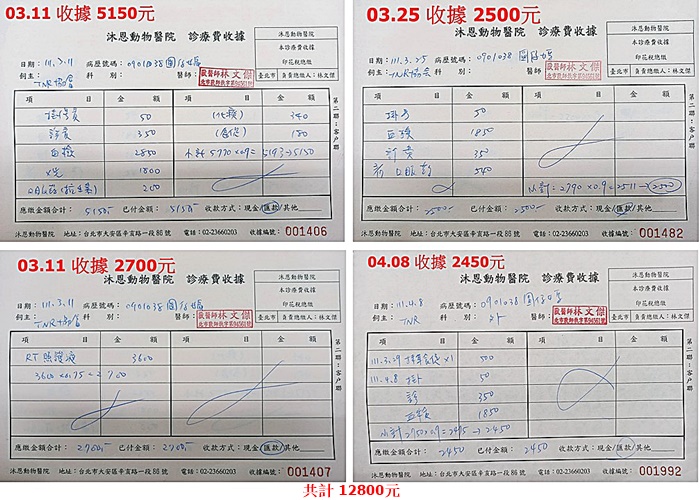 03.11 收據 5150元
沐恩動物醫院 診療費收據
沐恩動物醫院
本診療費收據
印花稅總繳
臺北市 負責總繳人：林文傑
日期：111.3.11 病歷號碼：0901038
飼主：TNR協會 科別： 醫師：獸醫師林文傑
項目 金額 項目 金額
掛號費 50 (化療) 340
診費 350 180
血檢 2850 小計 5770×0.9=5193→5150
X光 1800
口服藥(抗生素) 200
應繳金額合計：5150- 已付金額：5150- 收款方式：現金/匯款/其他
沐恩動物醫院 地址：台北市大安區辛亥路一段86號 電話：02-23660203 收據編號：001406
第二聯：客戶聯
03.25 收據 2500元
沐恩動物醫院 診療費收據
沐恩動物醫院
本診療費收據
印花稅總繳
臺北市 負責總繳人：林文傑
日期：111.3.25 病歷號碼：0901038
飼主：TNR協會 科別： 醫師：獸醫師林文傑
項目 金額 項目 金額
掛号 50
血檢 1850
診費 350
口服藥 540
小計=2790×0.9=2511→2500
應繳金額合計：2500- 已付金額：2500- 收款方式：現金/匯款/其他
沐恩動物醫院 地址：台北市大安區辛亥路一段86號 電話：02-23660203 收據編號：001482
第二聯：客戶聯
03.11 收據 2700元
沐恩動物醫院 診療費收據
沐恩動物醫院
本診療費收據
印花稅總繳
臺北市 負責總繳人：林文傑
日期：111.3.11 病歷號碼：0901038
飼主：TNR協會 科別： 醫師：獸醫師林文傑
項目 金額 項目 金額
RT 3600
3600×0.75=2700
應繳金額合計：2700- 已付金額：2700- 收款方式：現金/匯款/其他
沐恩動物醫院 地址：台北市大安區辛亥路一段86號 電話：02-23660203 收據編號：001407
第二聯：客戶聯
04.08 收據 2450元
沐恩動物醫院 診療費收據
沐恩動物醫院
本診療費收據
印花稅總繳
臺北市 負責總繳人：林文傑
日期：111.4.8 病歷號碼：0901038
飼主：TNR 科別： 醫師：獸醫師林文傑
項目 金額 項目 金額
111.3.29 ×1 500
111.4.8 掛 50
診 350
血檢 1850
小計 2750×0.9=2475→2450
應繳金額合計：2450 已付金額：2450 收款方式：現金/匯款/其他
沐恩動物醫院 地址：台北市大安區辛亥路一段86號 電話：02-23660203 收據編號：001992
第二聯：客戶聯
共計 12800元